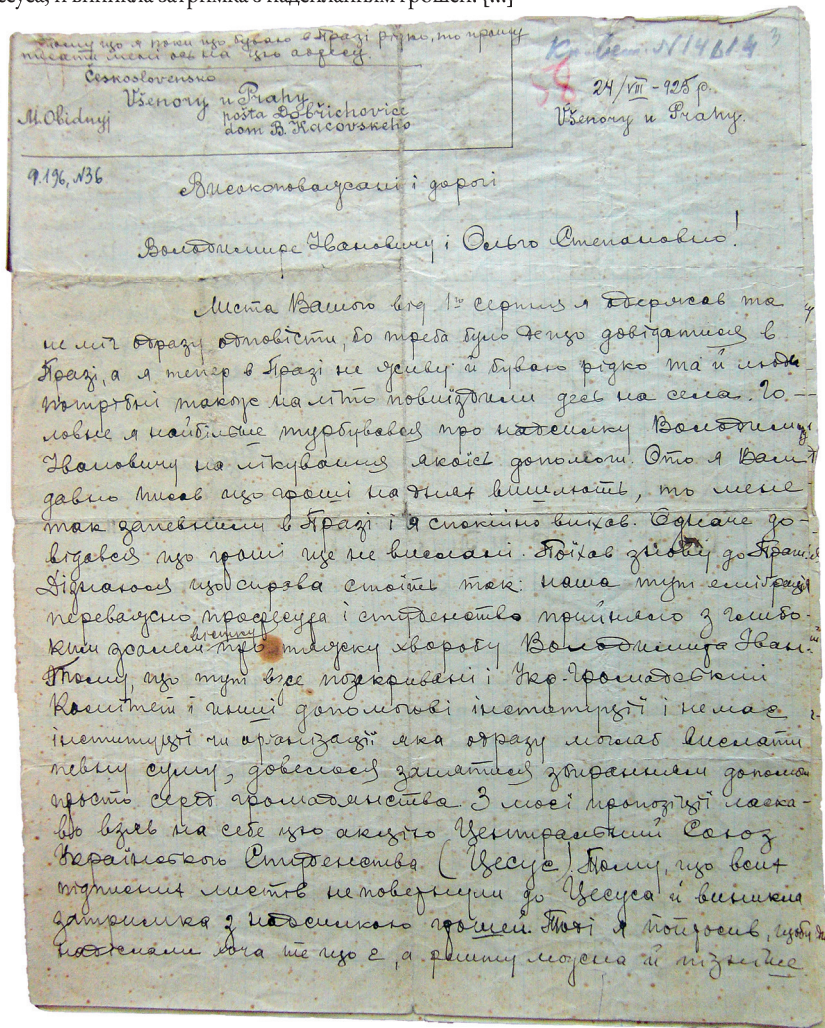 Цесуса, й виникла затримка з надсиланням грошей. [...]
Тому що я поки що буваю в Празі рідко, то прошу
писати мені ось на цю адресу.
Československo
M. Obidnyj
Všenory u Prahy
pošta Dobřichovice
dom B. Kacovskeho
24/VIII – 925 р.
Všenory u Prahy.
Високоповажані і дорогі
Володимире Івановичу і Ольго Степановно!
Листа Вашого від 1го серпня я одержав та
не міг одразу одповісти, бо треба було дещо довідатися в
Празі, а я тепер в Празі не живу й буваю рідко та й люде
потрібні також на літо повиїздили десь на села. Го-
ловне я найбільше турбувався про надсилку Володимиру
Івановичу на лікування якоїсь допомоги. Ото я Вам
давно писав що гроші на днях вишлють, то мене
так запевнили в Празі і я спокійно виїхав. Одначе до-
відався що гроші ще не вислані. Поїхав знову до Праги
Дізнаюся що справа стоїть так: наша тут еміграція
переважно професура і студенство прийняло з глибо-
ким жалем вістку про тяжку хворобу Володимира Іван.
Тому, що тут вже позакривані і Укр. Громадський
Комітет і инші допомогові інституції і немає
інституції чи організації яка одразу моглаб вислати
певну суму, довелося занятися збиранням допомоги
просто серед громадянства. З моєї пропозіції ласка-
во взяв на себе цю акцію Центральний Союз
Українського Студенства (Цесус). Тому, що всіх
підписних листів не повернули до Цесуса й виникла
затримка з надсилкою грошей. Тоді я попросив, щоби
надіслали хоча те що є, а решту можна й пізніше